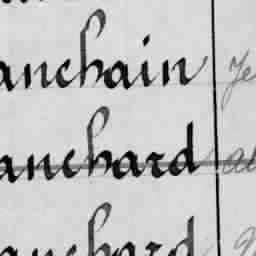 anchain
anchard
anchard